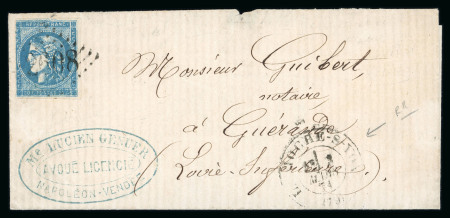 Monsieur Guibert,
notaire
à Guérande
(Loire-Inférieure)
Me LUCIEN GENUER
AVOUÉ LICENCIÉ
NAPOLÉON-VENDÉE
ROCHE-S-